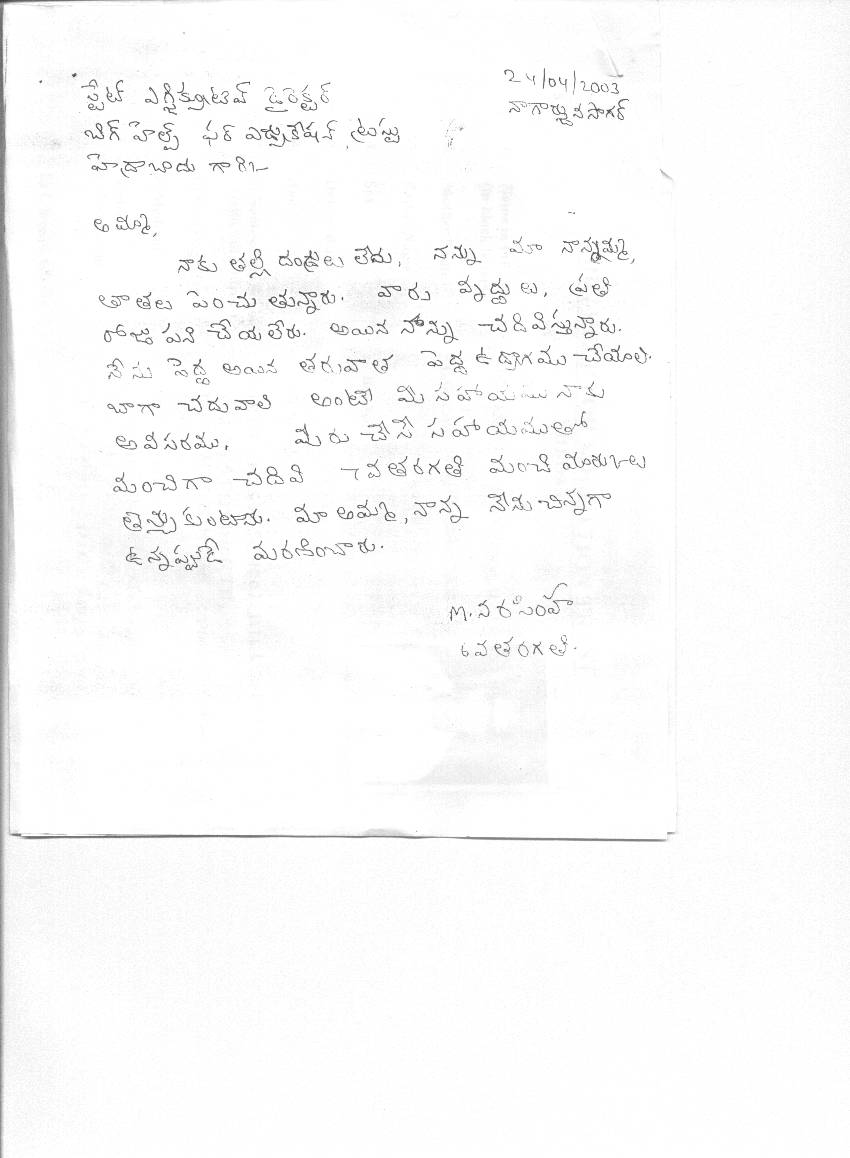 24/04/2003
నాగార్జున సాగర్
స్టేట్ ఎగ్జిక్యూటివ్ డైరెక్టర్
బిగ్ హెల్ప్ ఫర్ ఎడ్యుకేషన్ ట్రస్టు
హైద్రాబాదు గారికి
అమ్మా,
నాకు తల్లి దండ్రులు లేదు. నన్ను మా నాన్నమ్మ,
తాతలు పెంచు తున్నారు. వారు వృద్దులు, ప్రతి
రోజు పని చేయలేరు. అయిన నన్ను చదివిస్తున్నారు.
నేను పెద్ద అయిన తరువాత పెద్ద ఉద్యోగము చేయాలి.
బాగా చదువాలి అంటే మీ సహాయము నాకు
అవసరము. మీరు చేసే సహాయముతో
మంచిగా చదివి 7వ తరగతి మంచి మార్కులు
తెచ్చుకుంటాను. మా అమ్మ, నాన్న నేను చిన్నగా
ఉన్నప్పుడే మరణించారు.
M. నరసింహ
6వ తరగతి.